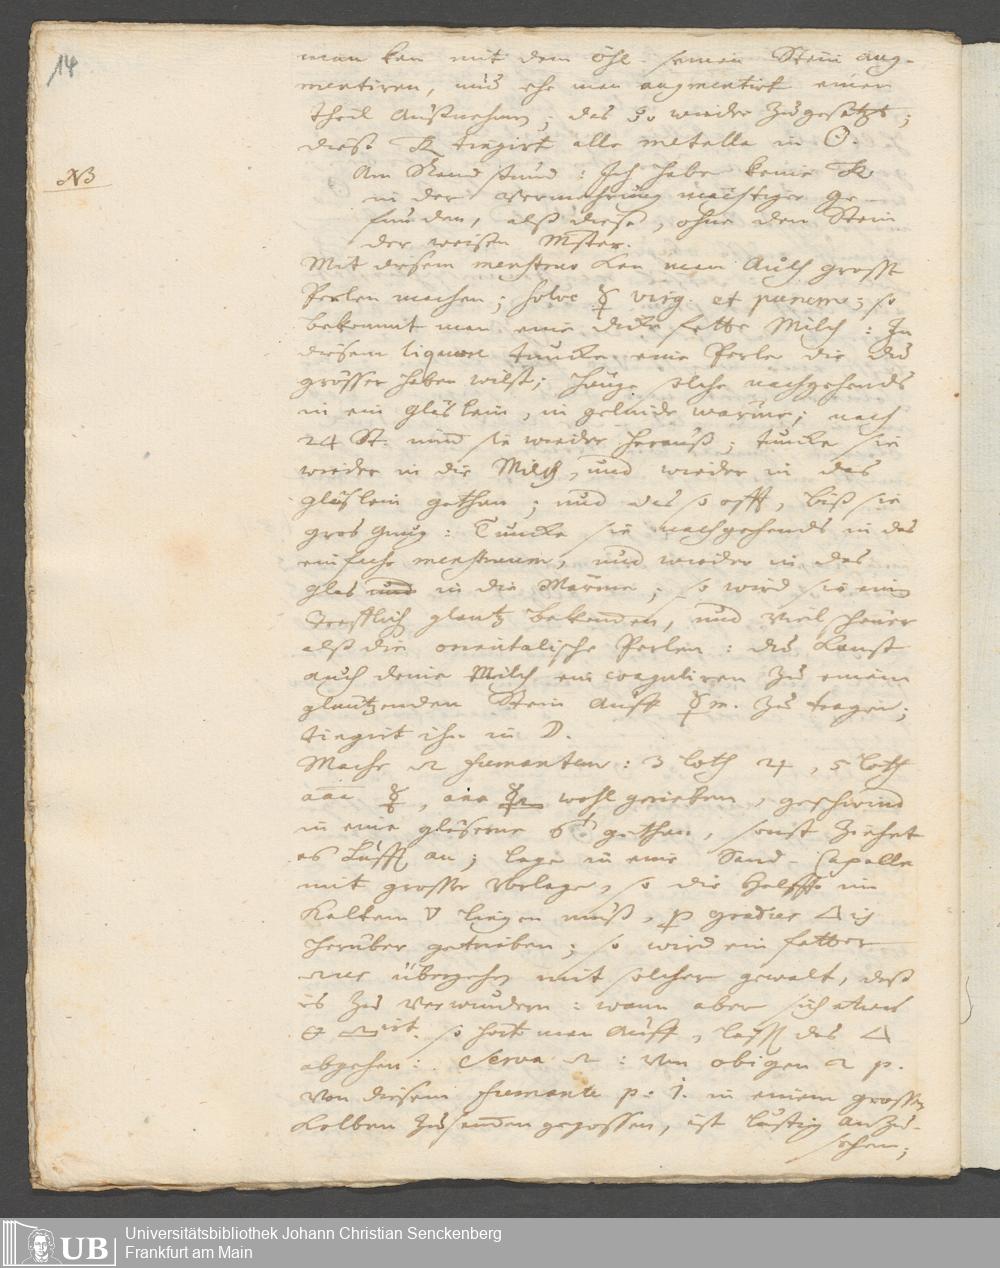 14
man kan mit dem öhl seinen Stein aug-
mentiren, und ehe man augmentirt einen
theil außnehmen; das wieder zugesetzt;
diese tingirt alle metalle in ☉.
NB
Am Rand stund: Ich habe keine
in der Vermehrung mächtiger ge-
funden, alß diese, ohne den Stein
der weisen
Mit diesem menstruo kan man Auch grosse
Perlen machen; solve ☿ virg. et pone; so
bekommt man eine dicke fette Milch: In
diesem liquore tuncke eine Perle die du
grösser haben wilst; hänge solche nachgehends
in ein gläslein, in gelinde wärme; nach
24 St. nimm sie wieder herauß; tuncke sie
wieder in die Milch, und wieder in das
gläslein gethan; und das so offt, biß sie
gros gnug: Tuncke sie nachgehends in das
einfache menstruum, und wieder in das
glas in die Wärme; so wird sie ein
trefflich glantz bekommen, und viel
alß die orientalische Perlen: du kanst
auch deine Milch coaguliren zu einem
gläntzenden Stein auff ☿ zu tragen;
tingirt ihn in ☽.
Mache fumantem: 3 loth ♃, 5 loth
☿, wohl gerieben, geschwind
in eine gläserne gethan, sonst ziehet
es Lufft an; lege in eine Sand-Capelle
mit grosser Vorlage, so die Helffte im
Kaltem ▽ liegen muß, gradus △
herüber getrieben; so wird ein fetter
übergehen mit solcher gewalt, daß
es zu verwundern: wann aber sich etwas
so hört man auff, lasse das △
abgehen: Serva: von obigen
Von diesem fumante p: j. in einem grossen
Kolben zusammen gegossen, ist lustig anzu-
sehen;
Universitätsbibliothek Johann Christian Senckenberg
Frankfurt am Main
UB